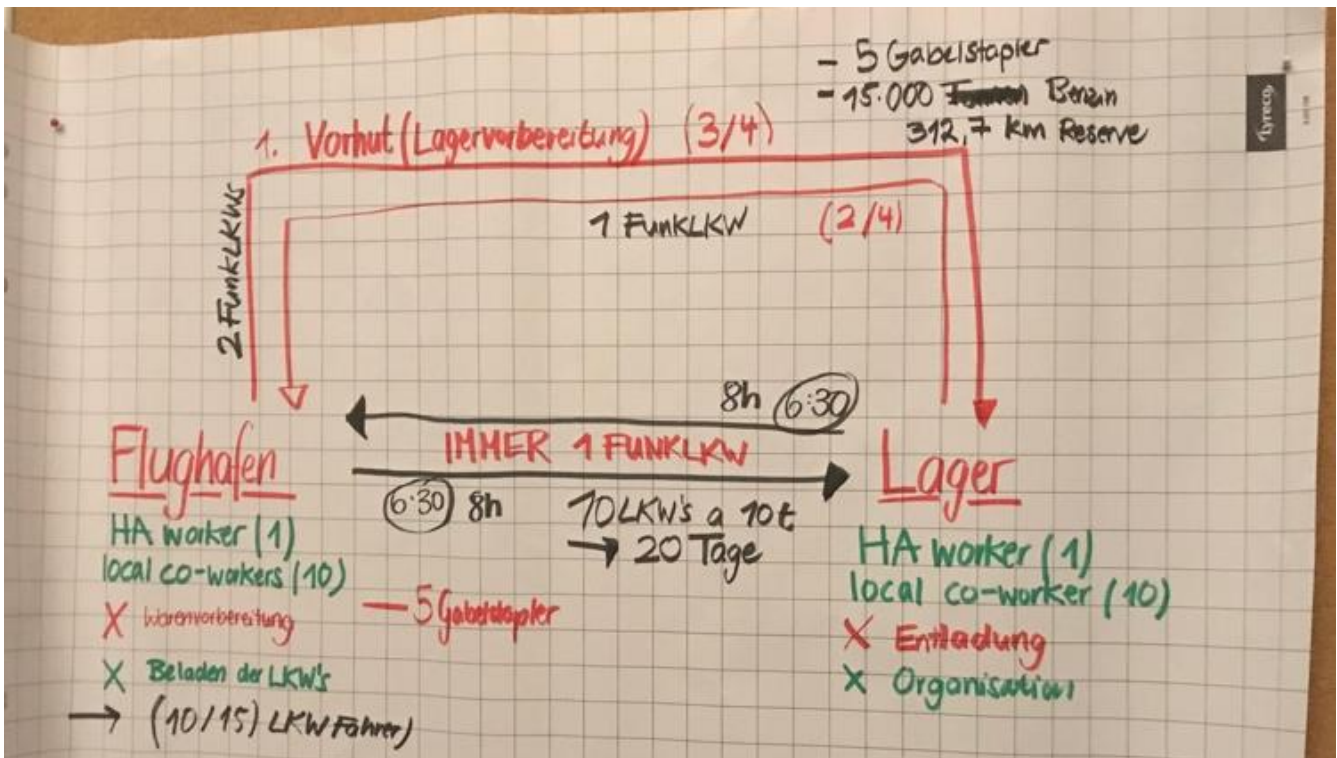 - 5 Gabelstapler
- 15.000 Benzin
312,7 km Reserve
1. Vorhut (Lagervorbereitung) (3/4)
2 FunkLKWs
1 FunkLKW (2/4)
8h 6:30
IMMER 1 FUNKLKW
6:30 8h
10 LKW's a 10t
→ 20 Tage
Flughafen
HA worker (1)
local co-workers (10)
X Warenvorbereitung
- 5 Gabelstapler
X Beladen der LKW's
→ (10/15) LKW Fahrer)
Lager
HA worker (1)
local co-worker (10)
X Entladung
X Organisation
Lyreco